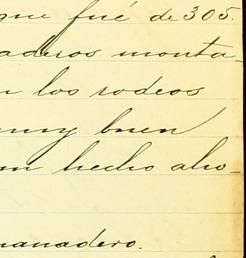 que fué de 305.
aderos monta-
n los rodeos
muy buen
an hecho aho-
manadero.